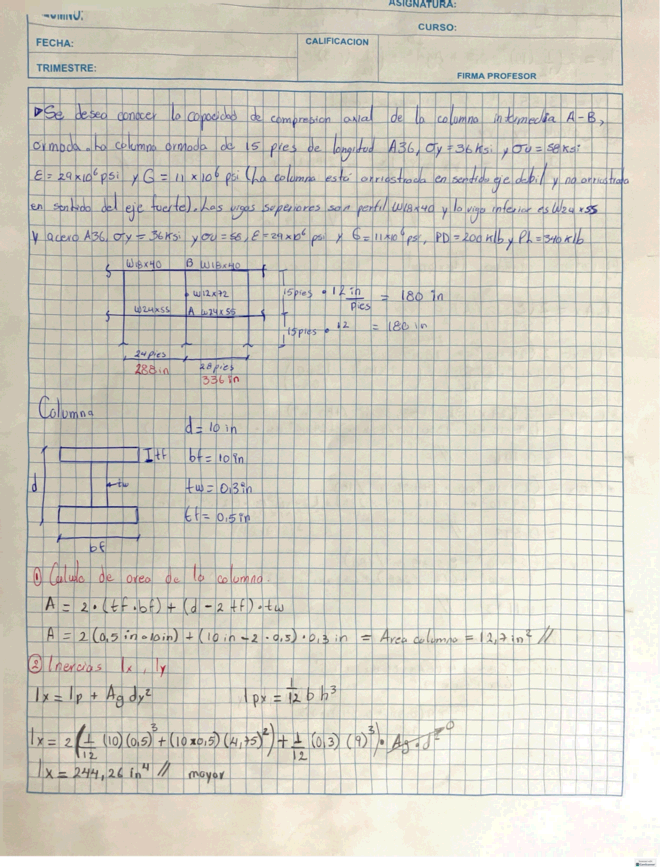 ASIGNATURA:
CURSO:
FECHA:
CALIFICACION
TRIMESTRE:
FIRMA PROFESOR
Se desea conocer la capacidad de compresion axial de la columna intermedia A-B,
armada. La columna armada de 15 pies de longitud A36, σy = 36Ksi y σu = 58Ksi
E = 29x10⁶ psi y G = 11 x 10⁶ psi (La columna está arriostrada en sentido eje debil y no arriostrada
en sentido del eje fuerte). Las vigas superiores son perfil W18x40 y la viga inferior es W24 x 55
y acero A36, σy = 36Ksi y σu = 58, E = 29x10⁶ psi y G = 11x10⁶ psi, PD = 200 Klb y PL = 340 Klb
W18x40 B W18x40
W12x72
15pies • 12 in/pies = 180 in
W24x55 A W24x55
15pies • 12 = 180 in
24pies 28pies
288in 336in
Columna
d = 10 in
tf bf = 10in
d tw tw = 0,3in
tf = 0,5in
bf
① Calculo de area de la columna
A = 2 • (tf • bf) + (d - 2 tf) • tw
A = 2 (0,5 in • 10in) + (10 in - 2 • 0,5) • 0,3 in = Area columna = 12,7 in² //
② Inercias Ix, Iy
Ix = Ip + Ag dy² Ipx = 1/12 b h³
Ix = 2 (1/12 (10)(0,5)³ + (10x0,5)(4,75)²) + 1/12 (0,3)(9)³) • Ag • d² 0
Ix = 244,26 in⁴ // mayor